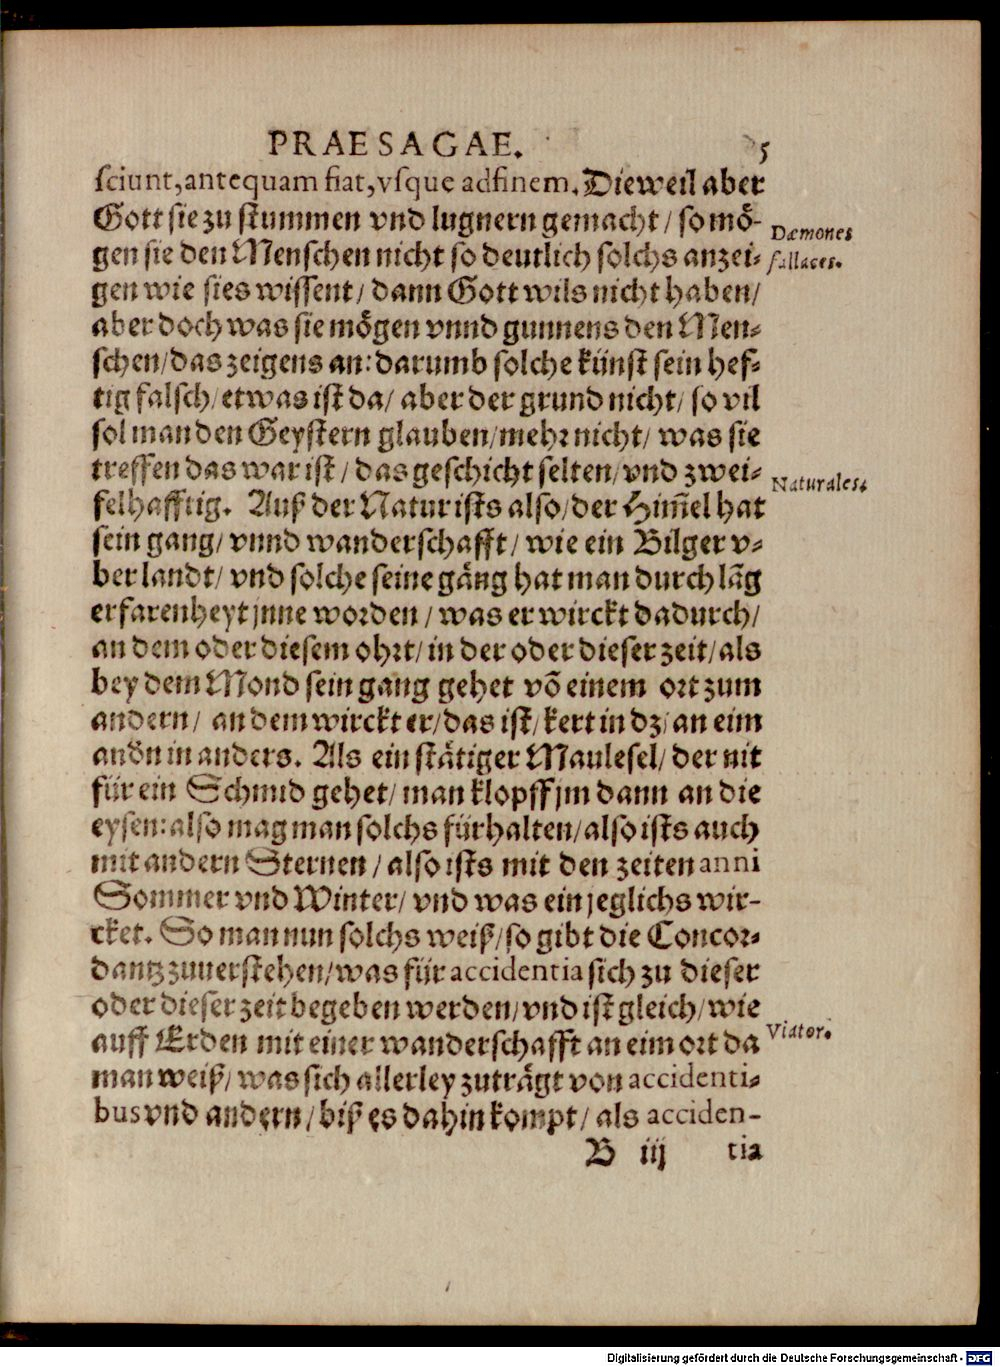 PRAESAGAE. 5
sciunt, antequam fiat, vsque ad finem. Dieweil aber
Gott sie zu stummen vnd lugnern gemacht / so mö-
Dæmones
gen sie den Menschen nicht so deutlich solchs anzei-
fallaces.
gen wie sies wissent / dann Gott wils nicht haben /
aber doch was sie mögen vnnd gunnens den Men-
schen / das zeigens an: darumb solche künst sein hef-
tig falsch / etwas ist da / aber der grund nicht / so vil
sol man den Geystern glauben / mehr nicht / was sie
treffen das war ist / das geschicht selten / vnd zwei-
Naturales.
felhafftig. Auß der Natur ists also / der Him̃el hat
sein gang / vnnd wanderschafft / wie ein Bilger v-
ber landt / vnd solche seine gäng hat man durch lãg
erfarenheyt jnne worden / was er wirckt dadurch /
an dem oder diesem ohrt / in der oder dieser zeit / als
bey dem Mond sein gang gehet võ einem ort zum
andern / an dem wirckt er / das ist / kert in dz / an eim
andn in anders. Als ein stätiger Maulesel / der nit
für ein Schmid gehet / man klopff jm dann an die
eysen: also mag man solchs fürhalten / also ists auch
mit andern Sternen / also ists mit den zeiten anni
Sommer vnd Winter / vnd was ein jeglichs wir-
cket. So man nun solchs weiß / so gibt die Concor-
dantz zuuerstehen / was für accidentia sich zu dieser
oder dieser zeit begeben werden / vnd ist gleich / wie
auff Erden mit einer wanderschafft an eim ort da
Viator.
man weiß / was sich allerley zuträgt von accidenti-
bus vnd andern / biß es dahin kompt / als acciden-
B iij tia
Digitalisierung gefördert durch die Deutsche Forschungsgemeinschaft - DFG